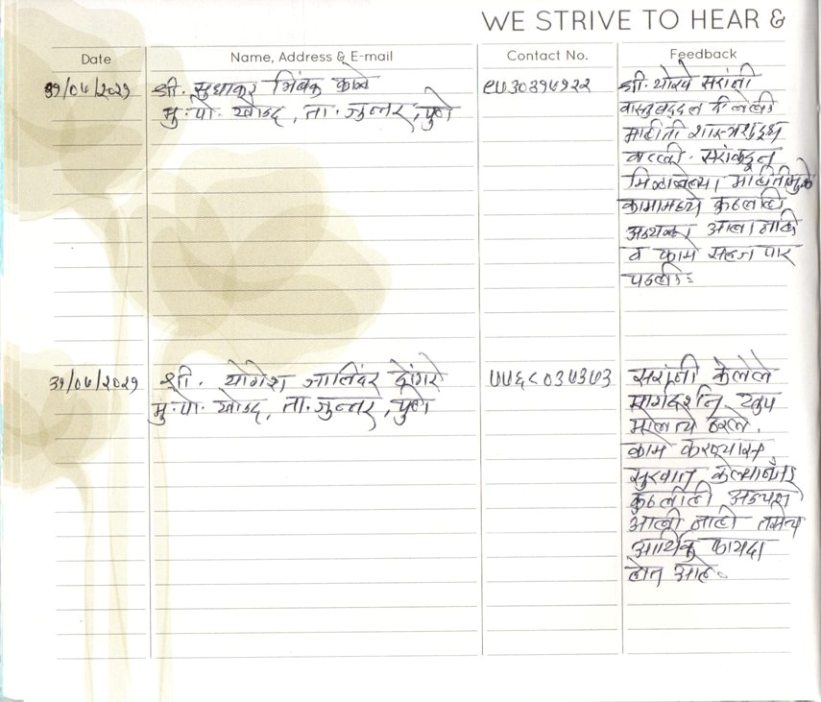 WE STRIVE TO HEAR &
Date Name, Address & E-mail Contact No. Feedback
३१/०५/२०२१ श्री. सुधाकर त्रिंबक काळे
मु.पो. खोडद, ता. जुन्नर, पुणे
श्री. थोरवे सरांनी
वास्तूबद्दल दिलेली
माहिती शास्त्रशुद्ध
वाटली. सरांकडून
मिळालेल्या माहितीमुळे
कामामध्ये कुठलाही
अडथळा आला नाही
व कामे सहज पार
पडली.
श्री. योगेश जालिंदर डोंगरे
मु.पो. खोडद, ता. जुन्नर, पुणे
सरांनी केलेले
मार्गदर्शन खुप
मोलाचे ठरले.
काम करण्यास
सुरवात केल्यानंतर
कुठलीही अडचण
आली नाही तसेच
आर्थिक फायदा
होत आहे.